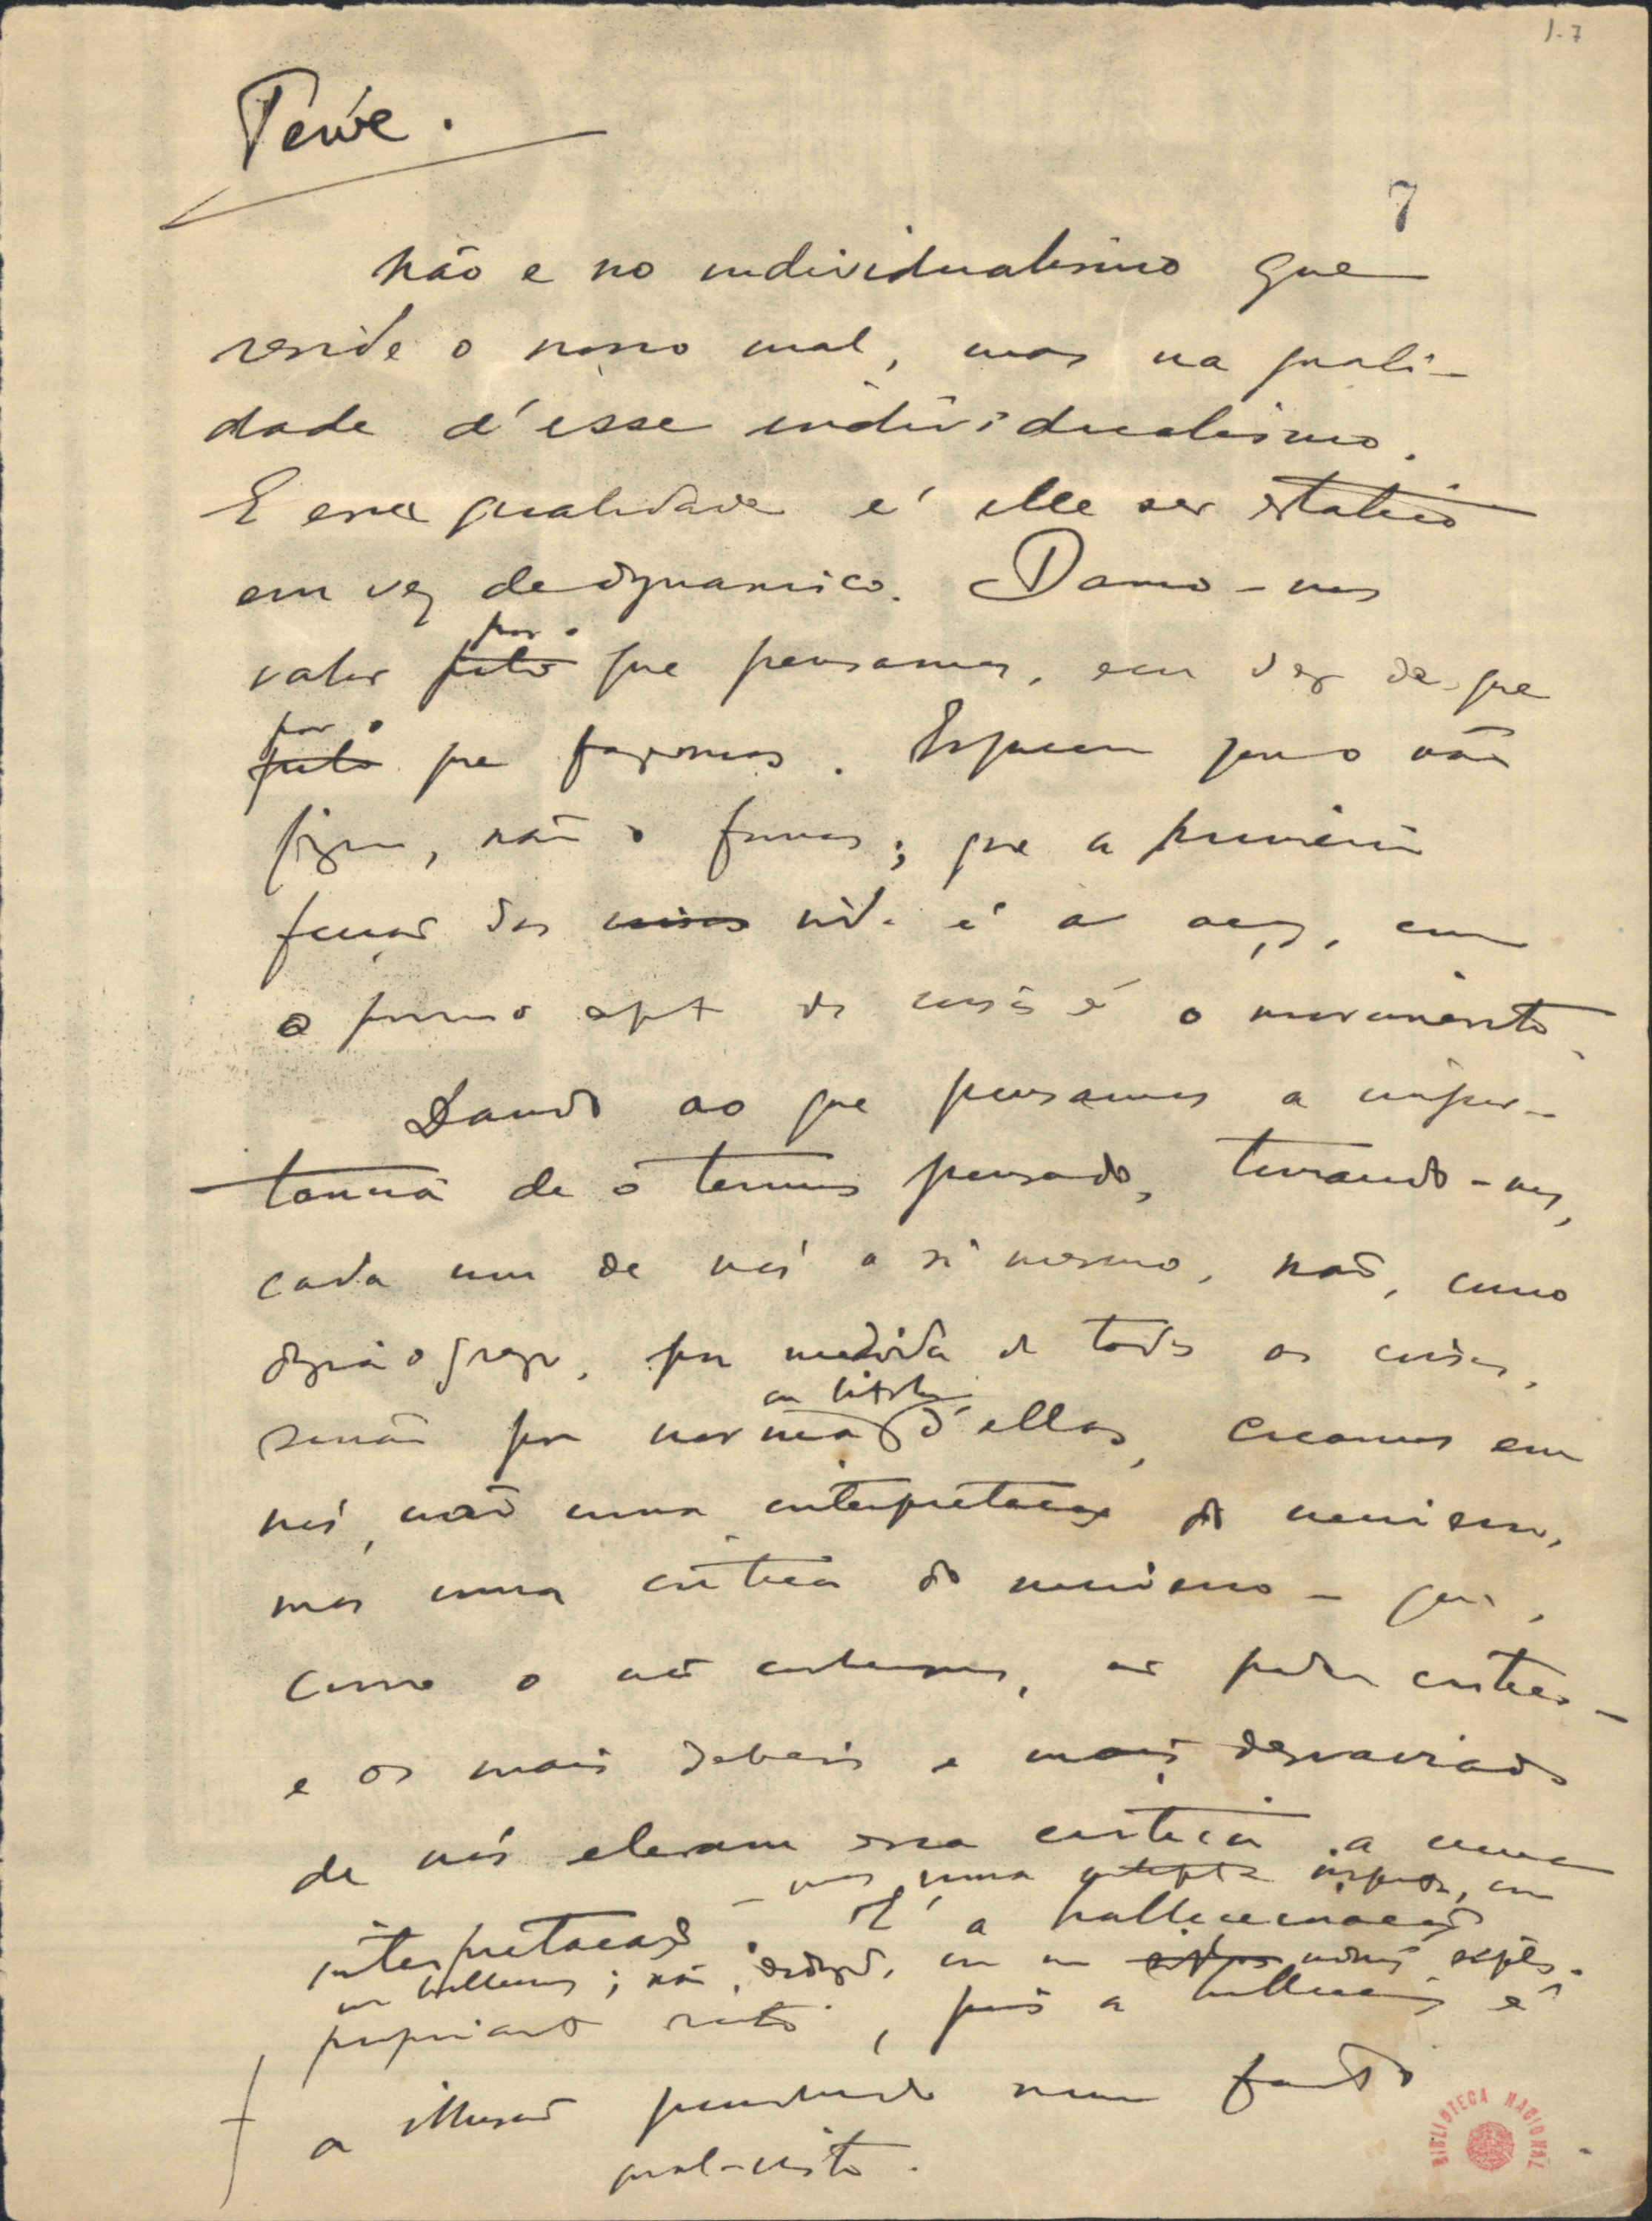 1-7
7
Não é no individualismo que
reside o nosso mal, mas na quali-
dade d'esse individualismo.
E essa qualidade é elle ser statico
em vez de dynamico. Damo-nos
valor por o que pensamos, em vez de que
por o que fazemos. Esquece que o não
fizemos, não o fomos; que a primeira
funcção das cousas vida é a acção, como
o primeiro aspecto das cousas é o movimento.
Dando ao que pensamos a impor-
tancia de o termos pensado, tomando-nos,
cada um de nós a si mesmo, não, como
dizia o grego, por medida de todas as cousas,
ou bitola
senão por norma d'ellas, creamos em
nós, não uma interpretação do universo,
mas uma critica do universo — que,
como o não conhecemos, não podemos criticar —
e os mais debeis e mais desvairados
de nós elevam essa critica a uma
— mas uma imposta, como
interpretação. É a hallucinação
; não deduzida, mas
propriamente dito, pois a hallucinação é
a illusão num facto
mal-visto.
BIBLIOTECA NACIONAL